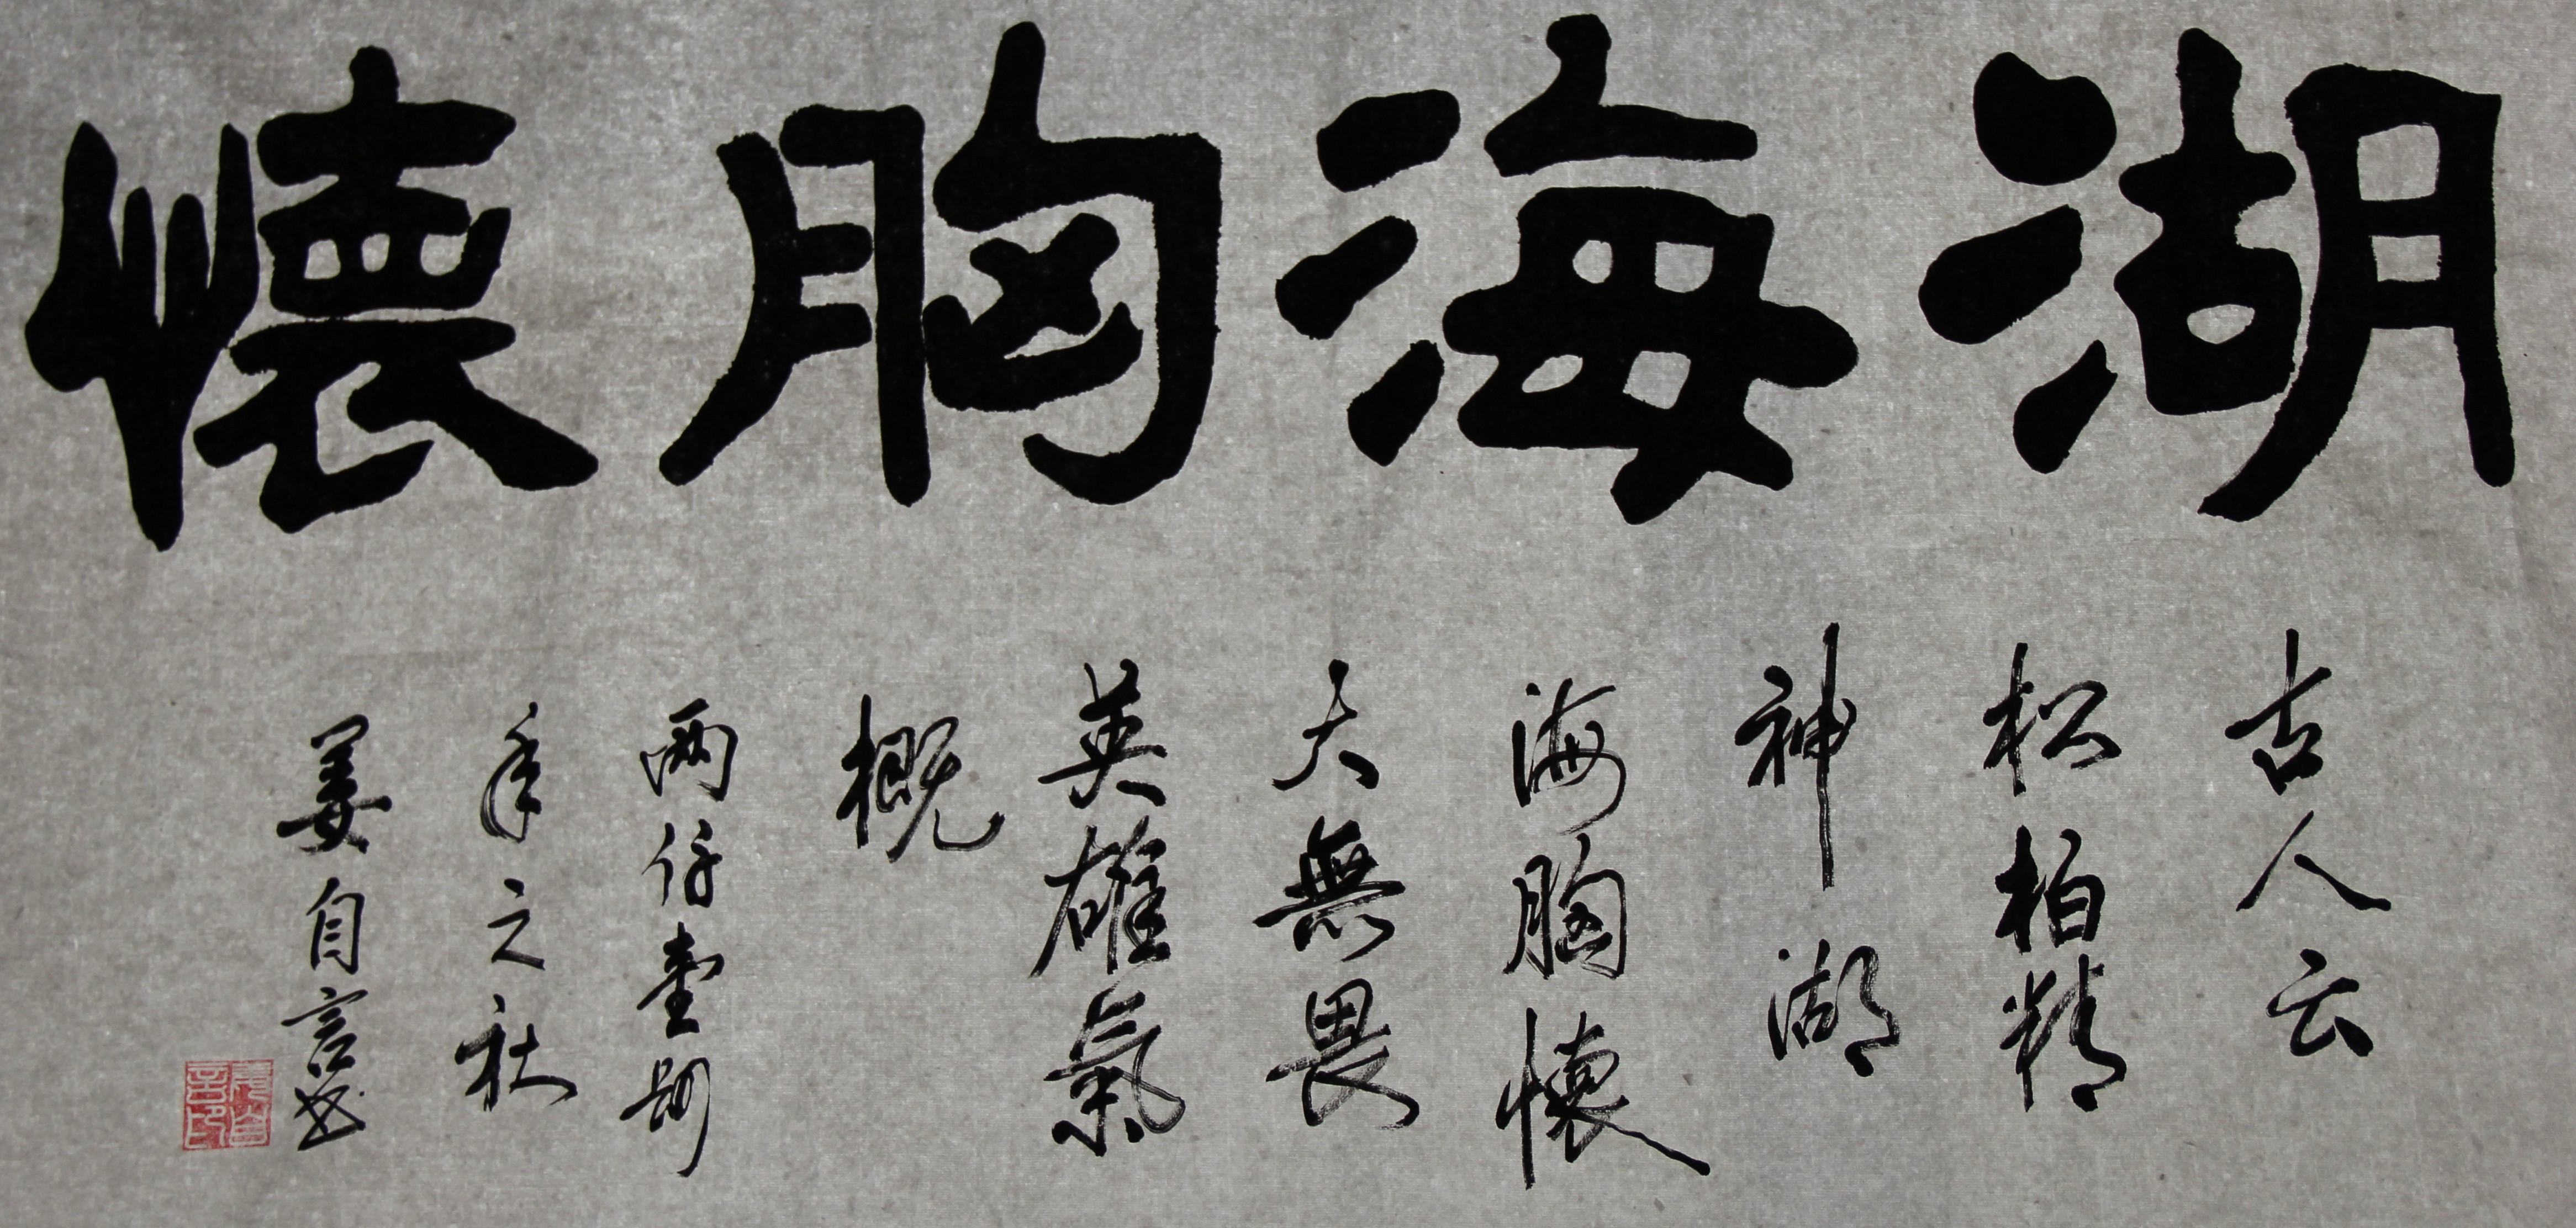 湖海胸懷
古人云
松柏精
神湖
海胸懷
大無畏
英雄氣
概
两仟壹
年之秋
姜自言書
姜自言印